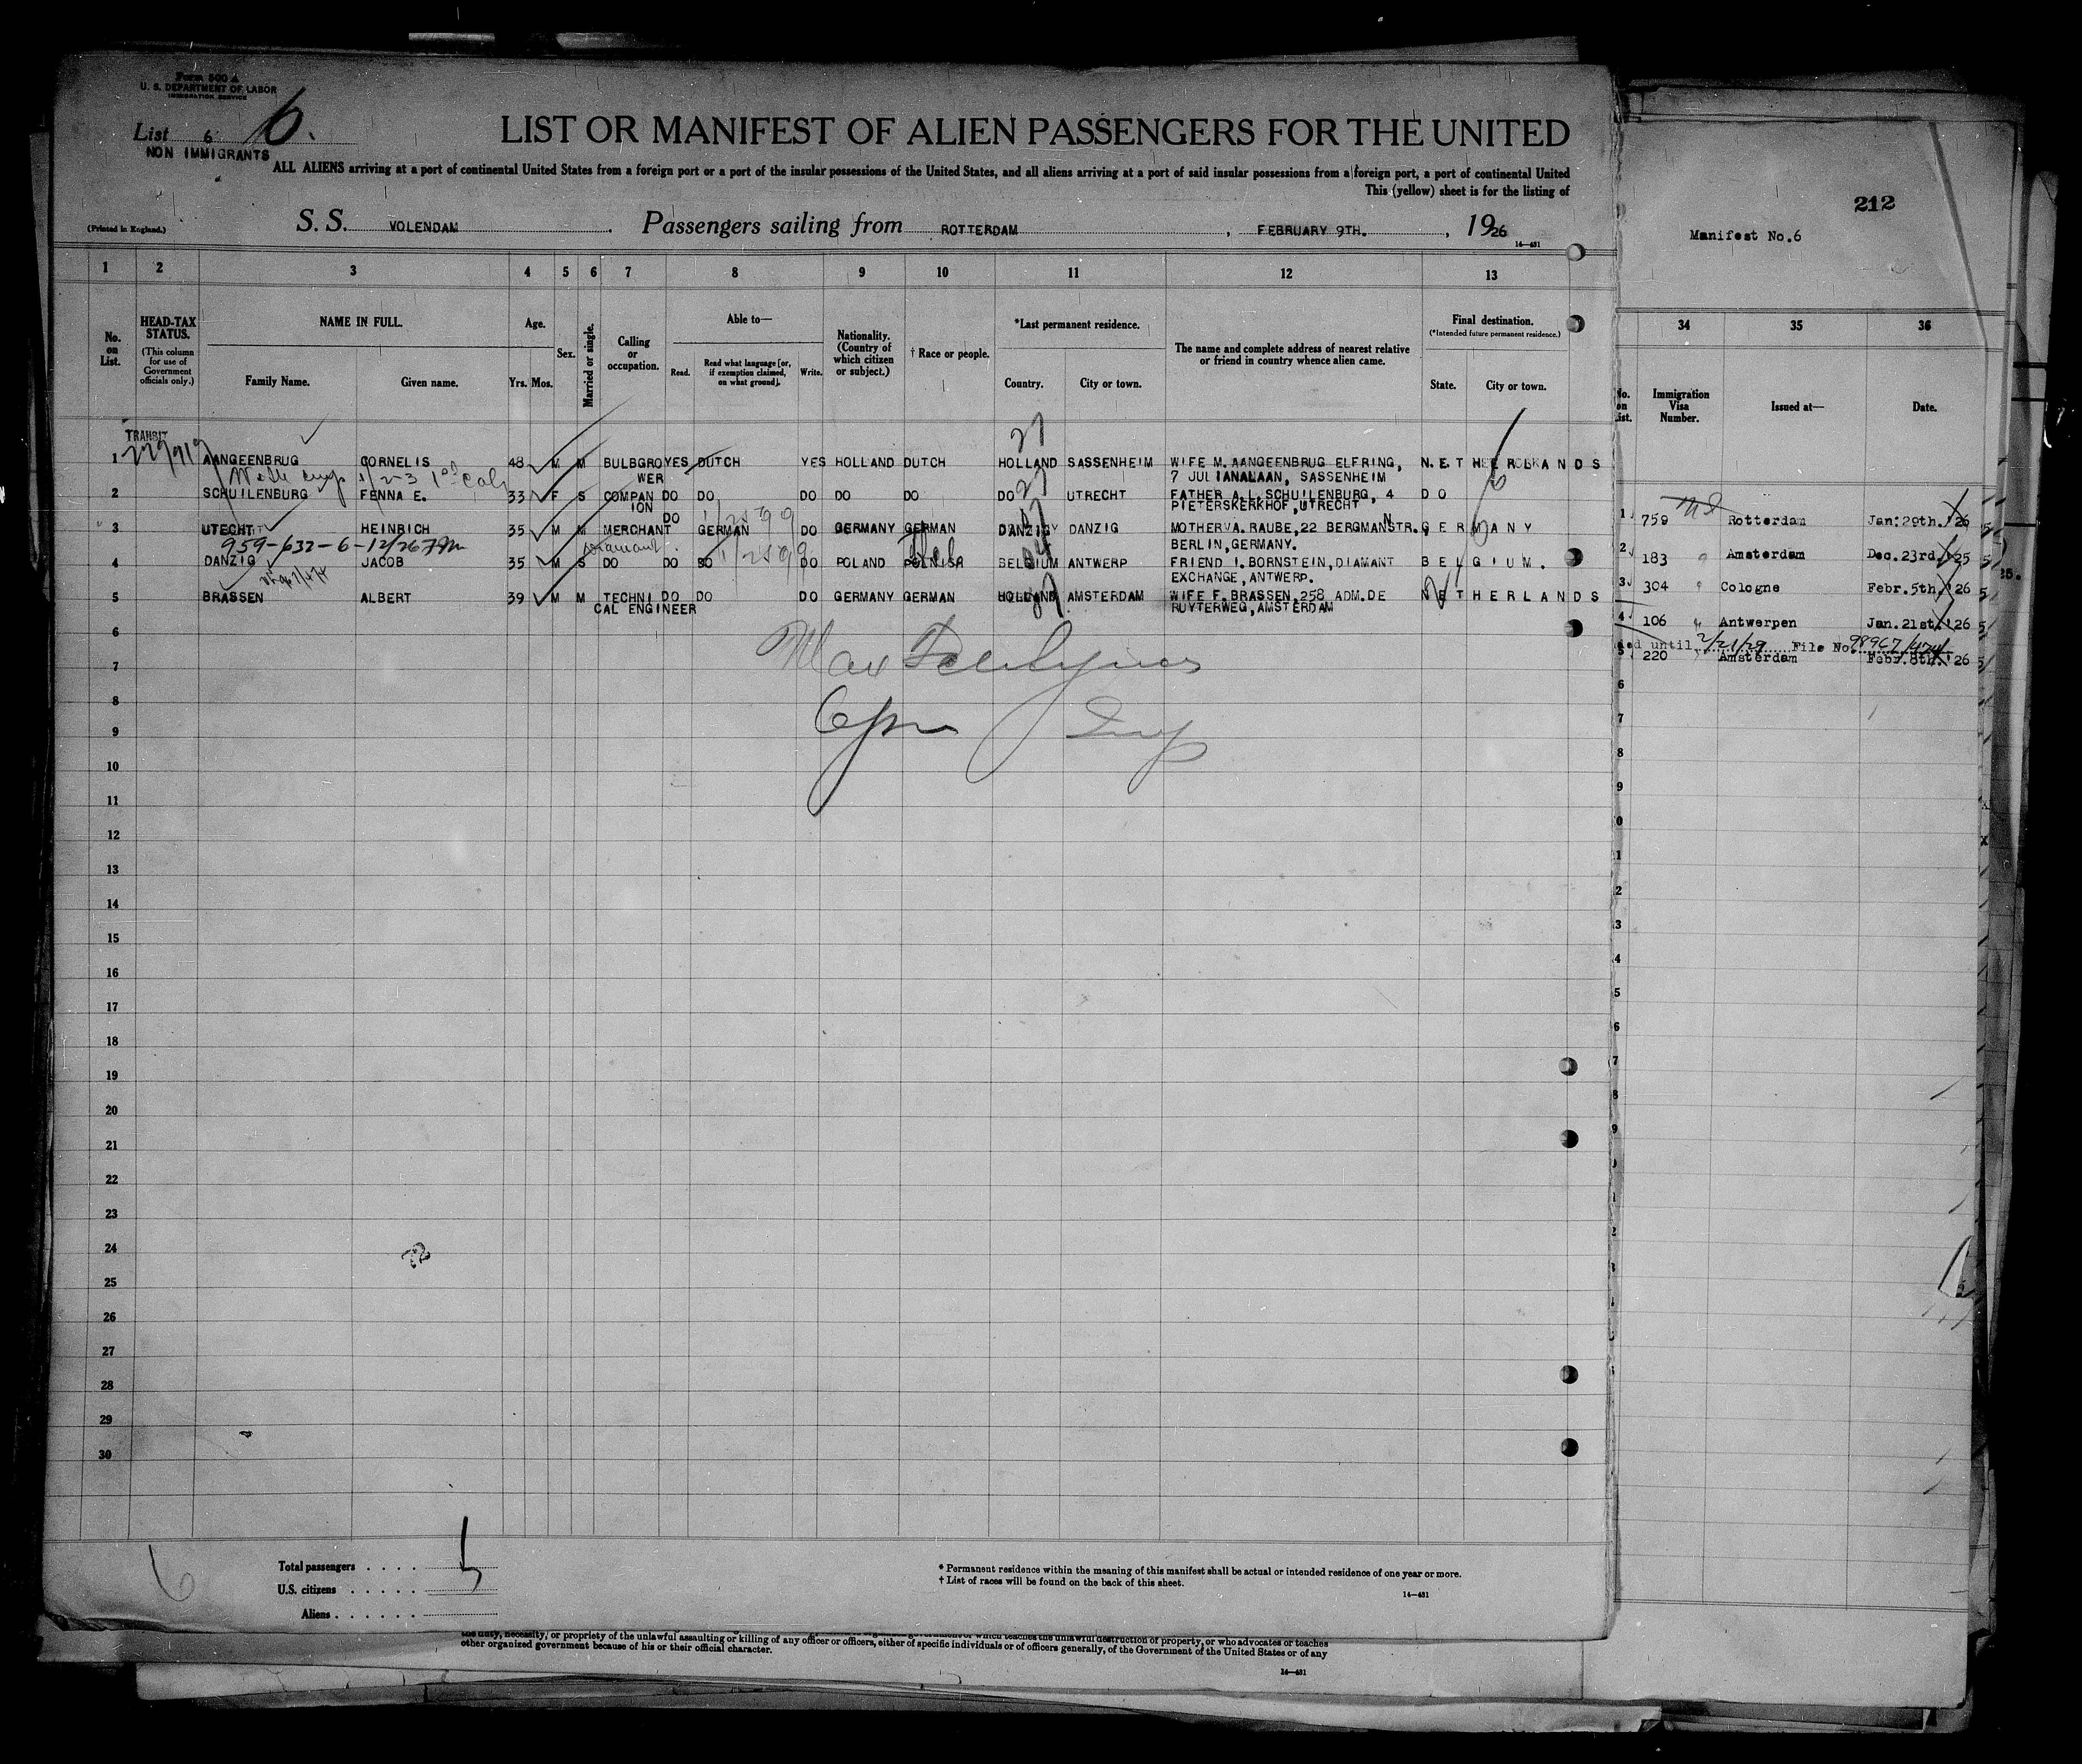 Form 500 A
U. S. DEPARTMENT OF LABOR
IMMIGRATION SERVICE
List 6 6.
NON IMMIGRANTS
LIST OR MANIFEST OF ALIEN PASSENGERS FOR THE UNITED
ALL ALIENS arriving at a port of continental United States from a foreign port or a port of the insular possessions of the United States, and all aliens arriving at a port of said insular possessions from a foreign port, a port of continental United
This (yellow) sheet is for the listing of
(Printed in England.)
S. S. VOLENDAM. Passengers sailing from ROTTERDAM, FEBRUARY 9TH., 1926
14—431
1 2 3 4 5 6 7 8 9 10 11 12 13
No. on List.
HEAD-TAX STATUS.
(This column for use of Government officials only.)
NAME IN FULL.
Family Name. Given name.
Age.
Yrs. Mos.
Sex.
Married or single.
Calling or occupation.
Able to—
Read. Read what language [or, if exemption claimed, on what ground]. Write.
Nationality. (Country of which citizen or subject.)
† Race or people.
*Last permanent residence.
Country. City or town.
The name and complete address of nearest relative or friend in country whence alien came.
Final destination.
(*Intended future permanent residence.)
State. City or town.
TRANSIT
1 AANGEENBRUG CORNELIS 48 M M BULBGRO YES DUTCH YES HOLLAND DUTCH HOLLAND SASSENHEIM WIFE M.AANGEENBRUG ELFRING, NETHERLANDS
WER 7 JULIANALAAN, SASSENHEIM
2 SCHUILENBURG FENNA E. 33 F S COMPAN DO DO DO DO DO DO UTRECHT FATHER A.L.SCHUILENBURG, 4 DO
ION PIETERSKERKHOF,UTRECHT
3 UTECHT HEINRICH 35 M M MERCHANT DO GERMAN DO GERMANY GERMAN DANZIG DANZIG MOTHER A. RAUBE,22 BERGMANNSTR. GERMANY
959-632-6-12/26
BERLIN,GERMANY.
4 DANZIG JACOB 35 M S DO DO DO DO POLAND POLNISH BELGIUM ANTWERP FRIEND I.BORNSTEIN,DIAMANT BELGIUM.
EXCHANGE,ANTWERP.
5 BRASSEN ALBERT 39 M M TECHNI DO DO DO GERMANY GERMAN HOLLAND AMSTERDAM WIFE F.BRASSEN,258 ADM.DE NETHERLANDS
CAL ENGINEER RUYTERWEG,AMSTERDAM
6
7
8
9
10
11
12
13
14
15
16
17
18
19
20
21
22
23
24
25
26
27
28
29
30
Total passengers . . . . 5
U.S. citizens . . . . .
Aliens . . . . . .
6
* Permanent residence within the meaning of this manifest shall be actual or intended residence of one year or more.
† List of races will be found on the back of this sheet.
14—431
the duty, necessity, or propriety of the unlawful assaulting or killing of any officer or officers, either of specific individuals or of officers generally, of the Government of the United States or of any
other organized government because of his or their official character.
14—431
212
Manifest No.6
34 35 36
No. on List.
Immigration Visa Number.
Issued at—
Date.
1 759 Rotterdam Jan.29th.'26
2 183 Amsterdam Dec.23rd.'25
3 304 Cologne Febr.5th.'26
4 106 Antwerpen Jan.21st.'26
until 2/21/29 File No. 98967/424
5 220 Amsterdam Febr.8th.'26